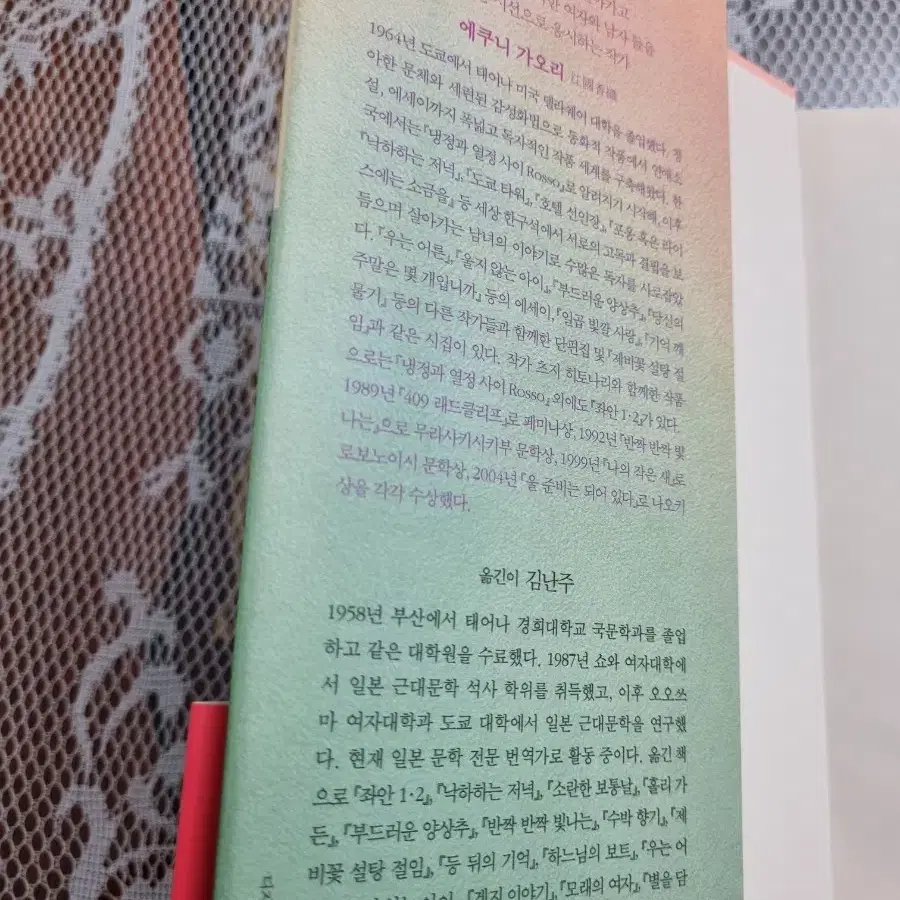 한 여자와 남자 들을
시선으로 응시하는 작가
에쿠니 가오리 江國香織
1964년 도쿄에서 태어나 미국 델라웨어 대학을 졸업했다. 청
아한 문체와 세련된 감성화법으로 동화적 작품에서 연애소
설, 에세이까지 폭넓고 독자적인 작품 세계를 구축해왔다. 한
국에서는 『냉정과 열정 사이 Rosso』로 알려지기 시작해, 이후
『낙하하는 저녁』, 『도쿄 타워』, 『호텔 선인장』, 『포옹 혹은 라이
스에는 소금을』 등 세상 한구석에서 서로의 고독과 결핍을 보
듬으며 살아가는 남녀의 이야기로 수많은 독자를 사로잡았
다. 『우는 어른』, 『울지 않는 아이』, 『부드러운 양상추』, 『당신의
주말은 몇 개입니까』 등의 에세이, 『일곱 빛깔 사랑』, 『기억 깨
물기』 등의 다른 작가들과 함께한 단편집 및 『제비꽃 설탕 절
임』과 같은 시집이 있다. 작가 츠지 히토나리와 함께한 작품
으로는 『냉정과 열정 사이 Rosso』 외에도 『좌안 1·2』가 있다.
1989년 『409 래드클리프』로 페미나상, 1992년 『반짝 반짝 빛
나는』으로 무라사키시키부 문학상, 1999년 『나의 작은 새』로
로보노이시 문학상, 2004년 『울 준비는 되어 있다』로 나오키
상을 각각 수상했다.
옮긴이 김난주
1958년 부산에서 태어나 경희대학교 국문학과를 졸업
하고 같은 대학원을 수료했다. 1987년 쇼와 여자대학에
서 일본 근대문학 석사 학위를 취득했고, 이후 오오쓰
마 여자대학과 도쿄 대학에서 일본 근대문학을 연구했
다. 현재 일본 문학 전문 번역가로 활동 중이다. 옮긴 책
으로 『좌안 1·2』, 『낙하하는 저녁』, 『소란한 보통날』, 『홀리 가
든』, 『부드러운 양상추』, 『반짝 반짝 빛나는』, 『수박 향기』, 『제
비꽃 설탕 절임』, 『등 뒤의 기억』, 『하느님의 보트』, 『우는 어
『겐지 이야기』, 『모래의 여자』, 『별을 담